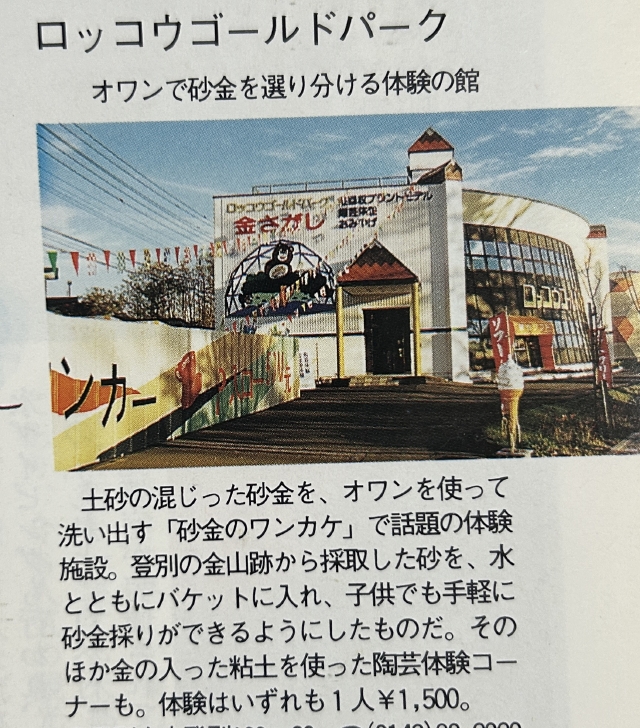 ロッコウゴールドパーク
オワンで砂金を選り分ける体験の館
ロッコウゴールドパーク
金さがし
プラントモデル
おみやげ
ンカー
ソフト
土砂の混じった砂金を、オワンを使って
洗い出す「砂金のワンカケ」で話題の体験
施設。登別の金山跡から採取した砂を、水
とともにバケットに入れ、子供でも手軽に
砂金採りができるようにしたものだ。その
ほか金の入った粘土を使った陶芸体験コー
ナーも。体験はいずれも1人¥1,500。